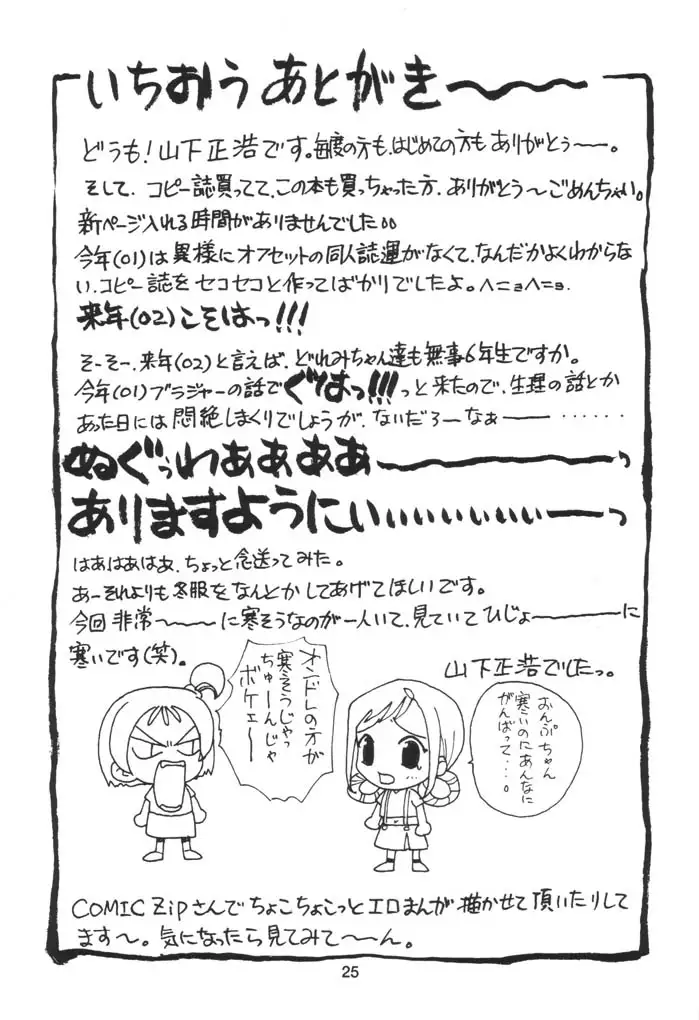 いちおう あとがき〜〜〜
どうも!山下正浩です。毎度の方も、はじめての方もありがとうー。
そして、コピー誌買ってて、この本も買っちゃった方、ありがとう〜ごめんちゃい。
新ページ入れる時間がありませんでした。。
今年(01)は異様にオフセットの同人誌運がなくて、なんだかよくわからな
い、コピー誌をセコセコと作ってばかりでしたよ。ヘニョヘニョ
来年(02)こそはっ!!!
そーそー、来年(02)と言えば、どれみちゃん達も無事6年生ですか。
今年(01)ブラジャーの話でぐはっ!!!っと来たので、生理の話とか
あった日には悶絶しまくりでしょうが、ないだろーなぁー……
ぬぐっわああああーーっ
ありますようにぃぃぃぃぃぃぃーっ
はあはあはあ、ちょっと念送ってみた。
あーそれよりも冬服をなんとかしてあげてほしいです。
今回非常〜〜に寒そうなのが一人いて、見ていてひじょーーに
寒いです(笑)。
山下正浩でしたっ。
オンドレの方が
寒そうじゃっ
ちゅーんじゃ
ボケェー
おんぷちゃん
寒いのにあんなに
がんばって・・・。
COMIC Zipさんでちょこちょこっとエロまんが描かせて頂いたりして
ます〜。気になったら見てみて〜ん。
25